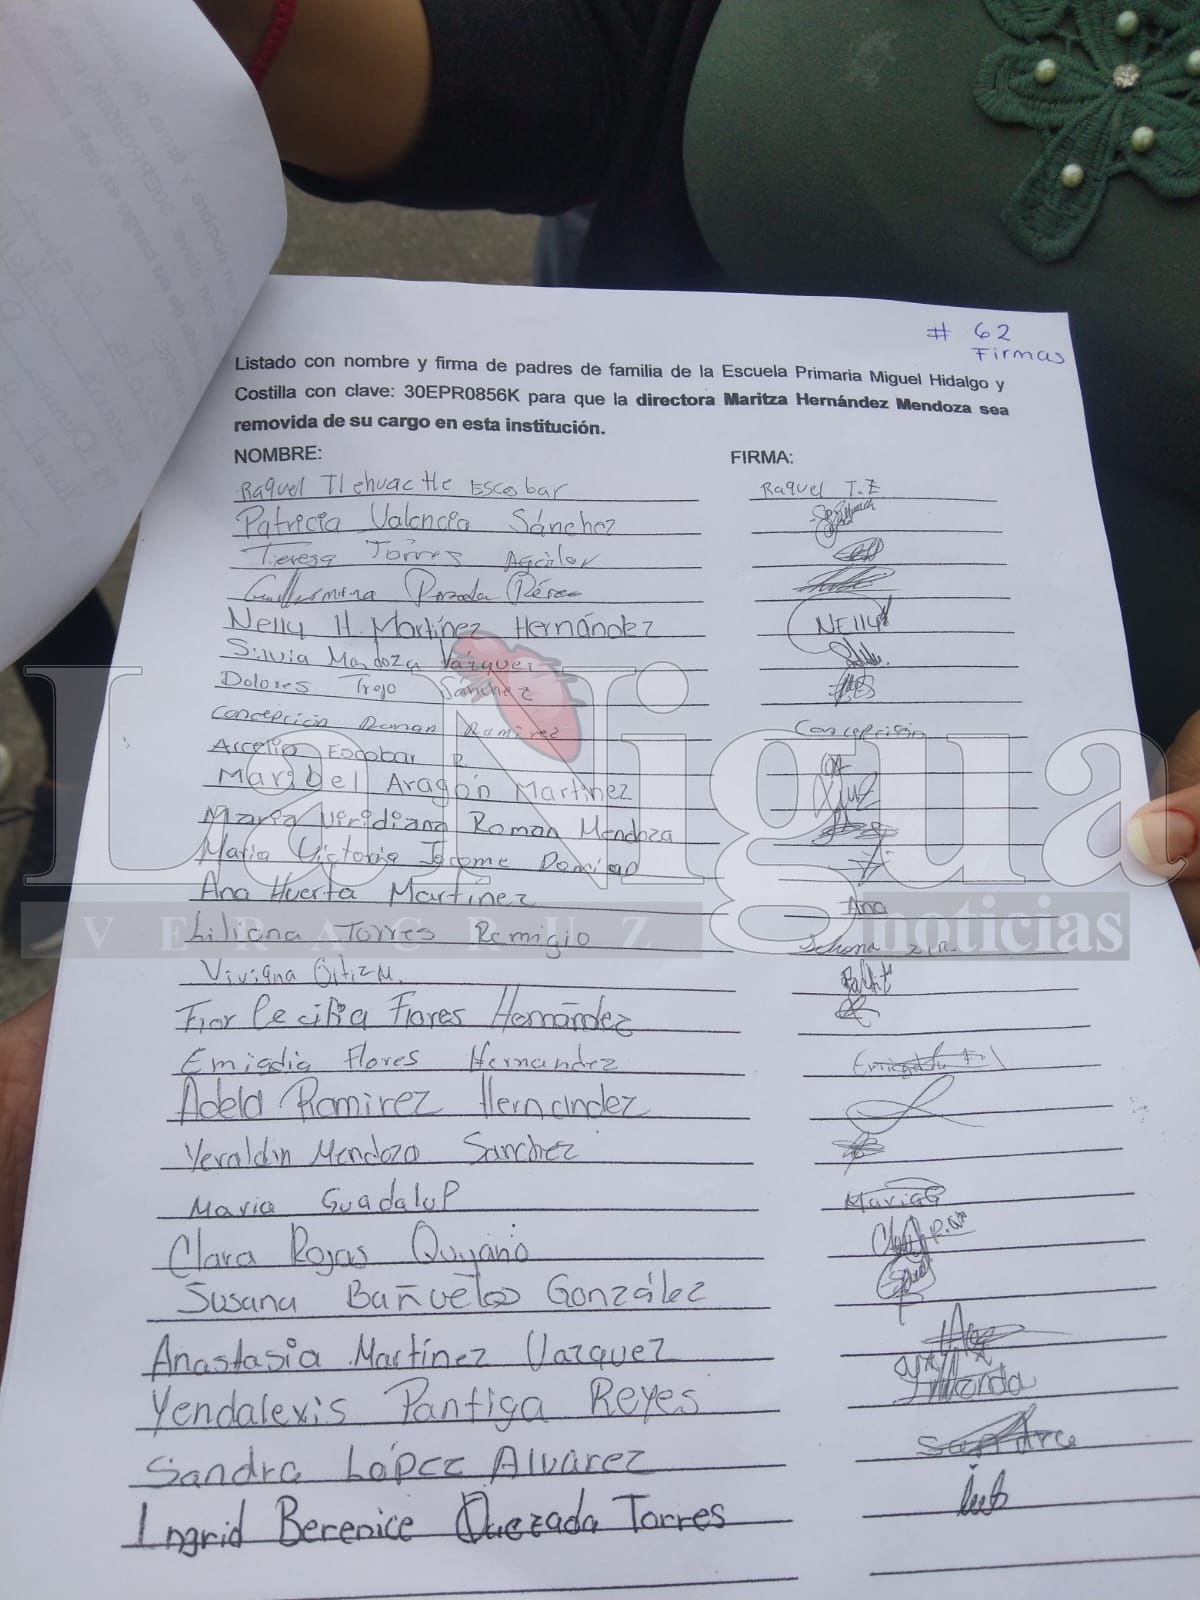 # 62
Firmas
Listado con nombre y firma de padres de familia de la Escuela Primaria Miguel Hidalgo y
Costilla con clave: 30EPR0856K para que la directora Maritza Hernández Mendoza sea
removida de su cargo en esta institución.
NOMBRE: FIRMA:
Raquel Tlehuactle Escobar Raquel T.E
Patricia Valencia Sánchez
Teresa Torres Aguilar
Guillermina Posada Pérez
Nelly H. Martínez Hernández Nelly
Silvia Mendoza Vázquez
Dolores Trejo Sánchez
Concepción Roman Ramirez Concepción
Arcelia Escobar R.
Maribel Aragón Martínez
María Viridiana Roman Mendoza
Maria Victoria Jacome
Ana Huerta Martínez Ana
Liliana Torres Remigio
Viviana Ortiz M.
Flor Cecilia Flores Hernández
Emigdia Flores Hernandez
Adela Ramirez Hernández
Yeraldin Mendoza Sanchez
Maria Guadalup Maria G
Clara Rojas Quijano
Susana Bañuelos González
Anastasia Martínez Vazquez
Yendalexis Pantiga Reyes
Sandra López Alvarez Sandra
Ingrid Berenice Quezada Torres
La Nigua
VERACRUZ noticias